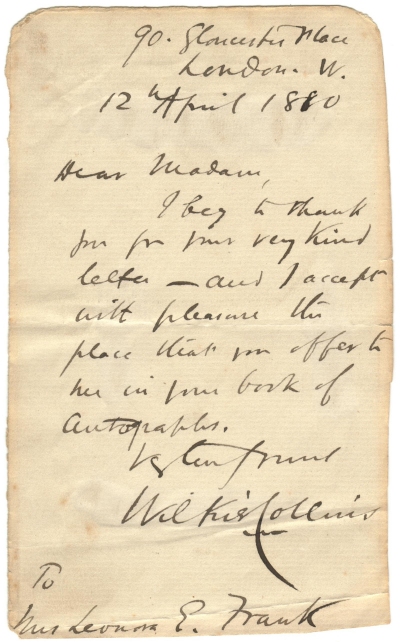 90. Gloucester Place
London. W.
12th April 1880
Dear Madam,
I beg to thank
you for your very kind
letter – and I accept
with pleasure the
place that you offer to
me in your book of
autographs.
Vy truly yours
Wilkie Collins
To
Mrs Leonora E. Frank